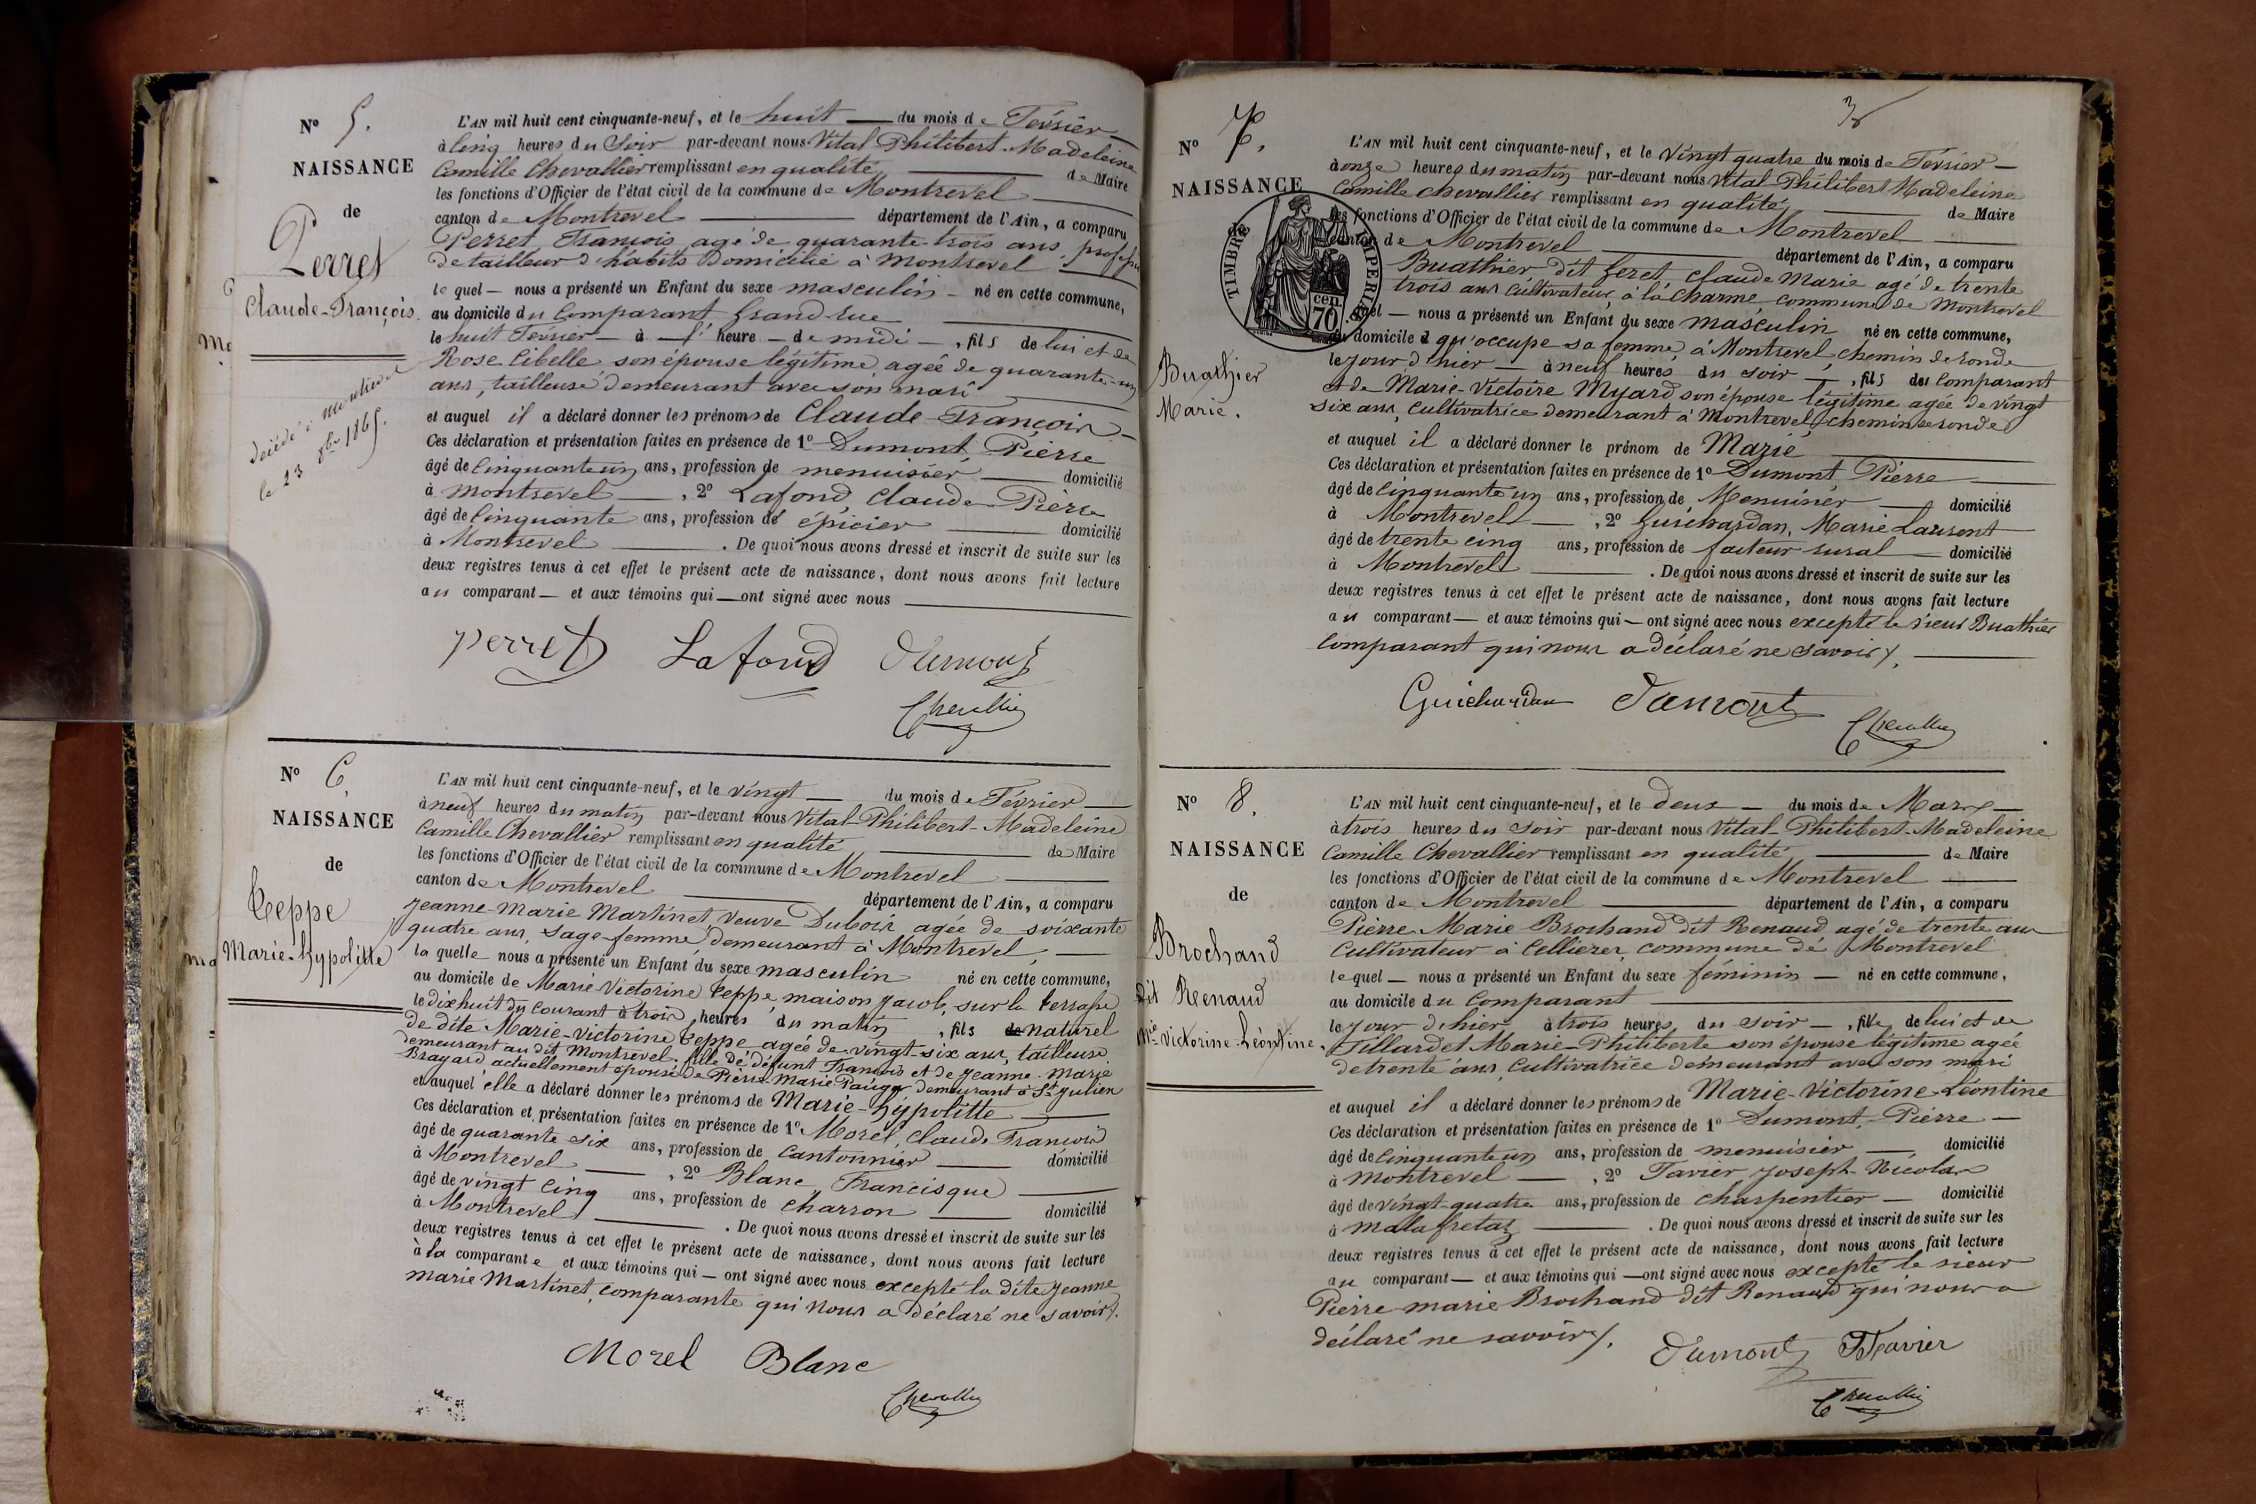 N° 5.
NAISSANCE
de
Perret
Claude-François
décédé à
le 23 8bre 1865.
L'AN mil huit cent cinquante-neuf, et le huit — du mois de Février
à cinq heures du soir par-devant nous Vital Philibert Madeleine
Camille Chevallier remplissant en qualité — de Maire
les fonctions d'Officier de l'état civil de la commune de Montrevel
canton de Montrevel — département de l'Ain, a comparu
Perret, François agé de quarante-trois ans, profession
de tailleur d'habits domicilié à Montrevel
le quel — nous a présenté un Enfant du sexe masculin — né en cette commune,
au domicile du comparant grand rue
le huit Février — à l' heure — de midi — , fils de lui et de
Rose Cibelle, son épouse légitime, agée de quarante-un
ans, tailleuse demeurant avec son mari
et auquel il a déclaré donner les prénoms de Claude-François —
Ces déclaration et présentation faites en présence de 1° Dumont, Pierre
âgé de cinquante un ans, profession de menuisier — domicilié
à Montrevel — , 2° Lafond, Claude-Pierre
âgé de cinquante ans, profession de épicier — domicilié
à Montrevel — . De quoi nous avons dressé et inscrit de suite sur les
deux registres tenus à cet effet le présent acte de naissance, dont nous avons fait lecture
au comparant — et aux témoins qui — ont signé avec nous
Perret Lafond Dumont
Chevallier
N° 6.
NAISSANCE
de
Teppe
Marie-hypolitte
L'AN mil huit cent cinquante-neuf, et le vingt — du mois de Février
à neuf heures du matin par-devant nous Vital-Philibert-Madeleine
Camille Chevallier remplissant en qualité — de Maire
les fonctions d'Officier de l'état civil de la commune de Montrevel
canton de Montrevel — département de l'Ain, a comparu
Jeanne-Marie Martinet, veuve Dubois, agée de soixante
quatre ans, sage-femme, demeurant à Montrevel,
la quelle nous a présenté un Enfant du sexe masculin né en cette commune,
au domicile de Marie Victorine Teppe, maison Jacob, sur la terrasse
le dix huit du courant à trois heures du matin , fils de naturel
de dite Marie-Victorine Teppe agée de vingt-six ans, tailleuse
demeurant au dit Montrevel, fille de défunt François et de Jeanne-Marie
Brayard actuellement épouse de Pierre-Marie demeurant à St Julien
et auquel elle a déclaré donner les prénoms de Marie-hypolitte
Ces déclaration et présentation faites en présence de 1° Morel, Claude François
âgé de quarante six ans, profession de cantonnier — domicilié
à Montrevel — , 2° Blanc, Francisque
âgé de vingt cinq ans, profession de charron — domicilié
à Montrevel — . De quoi nous avons dressé et inscrit de suite sur les
deux registres tenus à cet effet le présent acte de naissance, dont nous avons fait lecture
à la comparante et aux témoins qui — ont signé avec nous excepté la dite Jeanne
Marie Martinet, comparante qui nous a déclaré ne savoir.
Morel Blanc
Chevallier
3
N° 7.
NAISSANCE
de
TIMBRE IMPERIAL
70 cen.
Buathier
Marie.
L'AN mil huit cent cinquante-neuf, et le vingt quatre du mois de Février —
à onze heures du matin par-devant nous Vital-Philibert Madeleine
Camille Chevallier remplissant en qualité — de Maire
les fonctions d'Officier de l'état civil de la commune de Montrevel
canton de Montrevel — département de l'Ain, a comparu
Buathier dit feret, Claude Marie agé de trente
trois ans cultivateur, à la Charme commune de Montrevel
lequel — nous a présenté un Enfant du sexe masculin né en cette commune,
au domicile qu'occupe sa femme à Montrevel, chemin de ronde
le jour d'hier — à neuf heures du soir — , fils du comparant
et de Marie-Victoire Myard son épouse légitime agée de vingt
six ans, cultivatrice demeurant à Montrevel, chemin de ronde
et auquel il a déclaré donner le prénom de Marie
Ces déclaration et présentation faites en présence de 1° Dumont, Pierre
âgé de cinquante un ans, profession de Menuisier — domicilié
à Montrevel — , 2° Guichardan, Marie Laurent
âgé de trente cinq ans, profession de facteur rural — domicilié
à Montrevel — . De quoi nous avons dressé et inscrit de suite sur les
deux registres tenus à cet effet le présent acte de naissance, dont nous avons fait lecture
au comparant — et aux témoins qui — ont signé avec nous excepté le sieur Buathier
comparant qui nous a déclaré ne savoir.
Guichardan Dumont
Chevallier
N° 8.
NAISSANCE
de
Brochand
dit Renaud
Mie Victorine-Léontine.
L'AN mil huit cent cinquante-neuf, et le deux — du mois de Mars —
à trois heures du soir par-devant nous Vital-Philibert-Madeleine
Camille Chevallier remplissant en qualité — de Maire
les fonctions d'Officier de l'état civil de la commune de Montrevel
canton de Montrevel — département de l'Ain, a comparu
Pierre Marie Brochand dit Renaud agé de trente ans
cultivateur à Cellierer, commune de Montrevel
le quel — nous a présenté un Enfant du sexe féminin — né en cette commune,
au domicile du comparant
le jour d'hier à trois heures du soir — , fille de lui et de
Tillardet Marie-Philiberte son épouse légitime agée
de trente ans, cultivatrice demeurant avec son mari
et auquel il a déclaré donner les prénoms de Marie-Victorine-Léontine
Ces déclaration et présentation faites en présence de 1° Dumont, Pierre —
âgé de cinquante un ans, profession de menuisier — domicilié
à Montrevel — , 2° Favier, Joseph-Nicolas
âgé de vingt-quatre ans, profession de charpentier — domicilié
à Malafretaz — . De quoi nous avons dressé et inscrit de suite sur les
deux registres tenus à cet effet le présent acte de naissance, dont nous avons fait lecture
au comparant — et aux témoins qui — ont signé avec nous excepté le sieur
Pierre-Marie Brochand dit Renaud qui nous a
déclaré ne savoir.
Dumont Favier
Chevallier